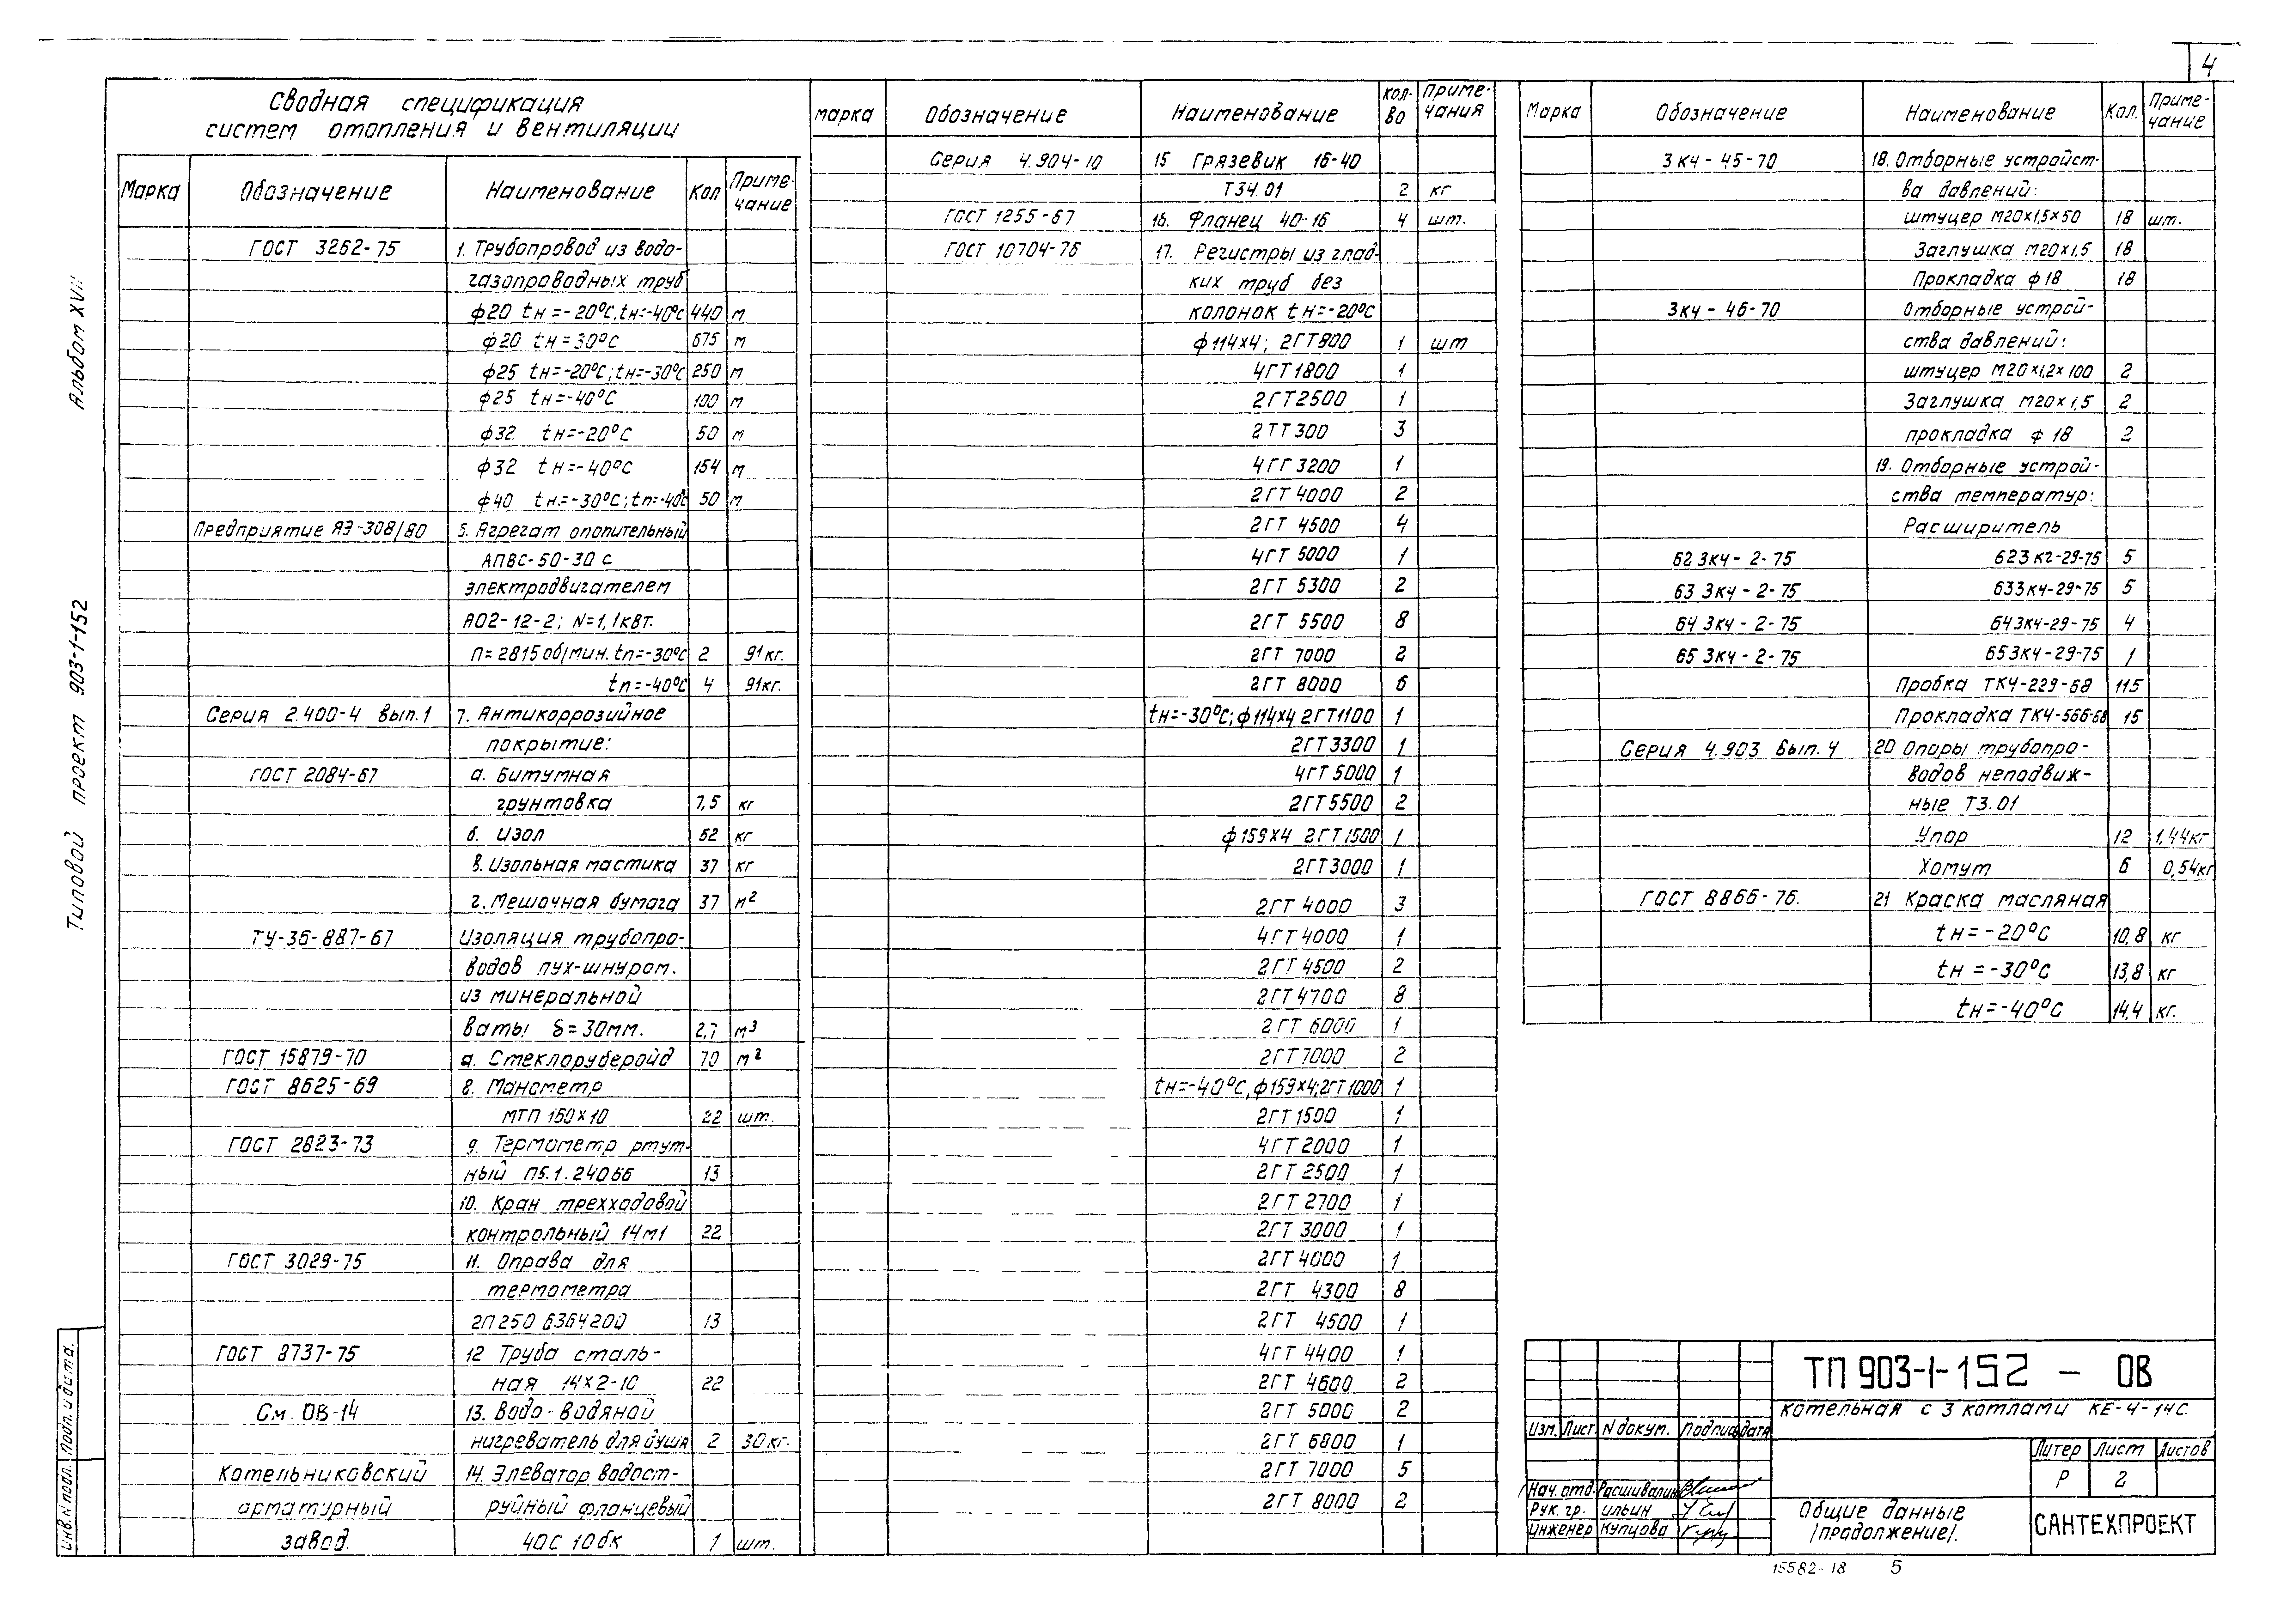 4
Альбом XVIII
Типовой проект 903-1-152
Инв.N подл. Подп. и дата.
Сводная спецификация
систем отопления и вентиляции
Марка Обозначение Наименование Кол. Приме-
чание
ГОСТ 3262-75 1. Трубопровод из водо-
газопроводных труб
ф20 tн=-20°С, tн=-40°С 440 м
ф20 tн=30°С 675 м
ф25 tн=-20°С; tн=-30°С 250 м
ф25 tн=-40°С 100 м
ф32 tн=-20°С 50 м
ф32 tн=-40°С 154 м
ф40 tн.=-30°С; tп=-40°С 50 м
Предприятие ЯЭ-308/80 6. Агрегат опопительный
АПВС-50-30 с
электродвигателем
АО2-12-2; N=1,1квт.
П=2815об/мин. tп=-30°С 2 91кг.
tп=-40°С 4 91кг.
Серия 2.400-4 вып.1 7. Антикоррозийное
покрытие:
ГОСТ 2084-67 а. Битумная
грунтовка 7,5 кг
б. Изол 62 кг
в. Изольная мастика 37 кг
г. Мешочная бумага 37 м²
ТУ-36-887-67 Изоляция трубопро-
водов пух-шнуром.
из минеральной
ваты δ=30мм. 2,7 м³
ГОСТ 15879-70 а. Стеклорубероид 70 м²
ГОСТ 8625-69 8. Манометр
МТП 160×10 22 шт.
ГОСТ 2823-73 9. Термометр ртут-
ный П5.1.24066 13
10. Кран трехходовой
контрольный 14м1 22
ГОСТ 3029-75 11. Оправа для
термометра
2П250 6364200 13
ГОСТ 8737-75 12 Труба сталь-
ная 14×2-10 22
См. ОВ-14 13. Водо-водяной
нагреватель для душа 2 30кг.
Котельниковский 14. Элеватор водост-
арматурный руйный фланцевый
завод. 40С 10бк 1 шт.
марка Обозначение Наименование Кол-
во Приме-
чания
Серия 4.904-10 15 Грязевик 16-40
Т34.01 2 кг
ГОСТ 1255-67 16. Фланец 40-16 4 шт.
ГОСТ 10704-76 17. Регистры из глад-
ких труб без
колонок tн=-20°С
ф114×4; 2ГТ800 1 шт
4ГТ1800 1
2ГТ2500 1
2ТТ300 3
4ГГ3200 1
2ГТ 4000 2
2ГТ 4500 4
4ГТ 5000 1
2ГТ 5300 2
2ГТ 5500 8
2ГТ 7000 2
2ГТ 8000 6
tн=-30°С; ф114×4 2ГТ1100 1
2ГТ3300 1
4ГТ5000 1
2ГТ5500 2
ф159×4 2ГТ1500 1
2ГТ3000 1
2ГТ 4000 3
4ГТ4000 1
2ГТ 4500 2
2ГТ4700 8
2ГТ 6000 1
2ГТ7000 2
tн=-40°С, ф159×4; 2ГТ1000 1
2ГТ1500 1
4ГТ2000 1
2ГТ 2500 1
2ГТ 2700 1
2ГТ 3000 1
2ГТ 4000 1
2ГТ 4300 8
2ГТ 4500 1
4ГТ 4400 1
2ГТ 4600 2
2ГТ 5000 2
2ГТ 6800 1
2ГТ 7000 5
2ГТ 8000 2
Марка Обозначение Наименование Кол. Приме-
чание
3кч-45-70 18. Отборные устройст-
ва давлений:
штуцер М20×1,5×50 18 шт.
Заглушка М20×1,5 18
Прокладка ф18 18
3кч-46-70 Отборные устрой-
ства давлений:
штуцер М20×1,2×100 2
Заглушка М20×1,5 2
прокладка ф18 2
19. Отборные устрой-
ства температур:
Расширитель
62 3кч-2-75 623кг-29-75 5
63 3кч-2-75 633кч-29-75 5
64 3кч-2-75 643кч-29-75 4
65 3кч-2-75 653кч-29-75 1
Пробка ТКЧ-229-68 115
Прокладка ТКЧ-566-68 15
Серия 4.903 вып. 4 20 Опоры трубопро-
водов неподвиж-
ные Т3.01
Упор 12 1,44кг
Хомут 6 0,54кг
ГОСТ 8866-76. 21 Краска масляная
tн=-20°С 10,8 кг
tн=-30°С 13,8 кг
tн=-40°С 14,4 кг.
ТП 903-1-152 - ОВ
котельная с 3 котлами КЕ-4-14С.
Изм. Лист. N докум. Подпись дата
Литер Лист Листов
Р 2
Нач. отд. Расшивалин
Рук. гр. Ильин
инженер Купцова
Общие данные
/продолжение/.
САНТЕХПРОЕКТ
15582-18 5